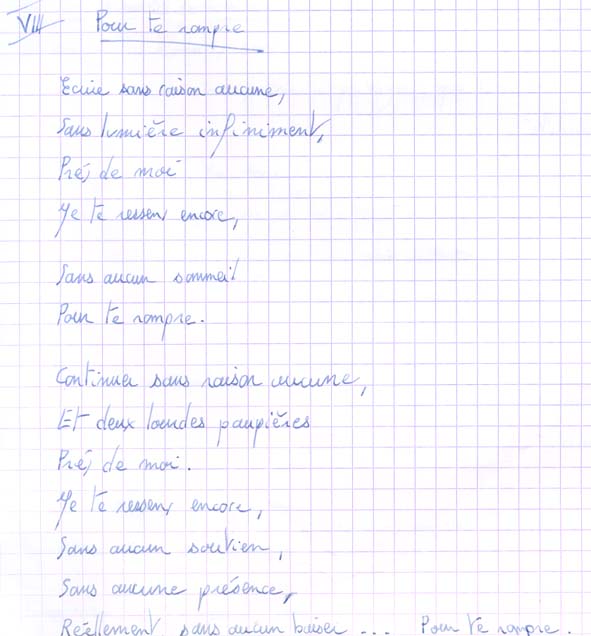 VIII Pour te rompre
Ecrire sans raison aucune,
Sans lumière infiniment,
Près de moi
Je te ressens encore,
Sans aucun sommeil
Pour te rompre.
Continuer sans raison aucune,
Et deux lourdes paupières
Près de moi.
Je te ressens encore,
Sans aucun soutien,
Sans aucune présence,
Réellement, sans aucun baiser ... Pour te rompre.